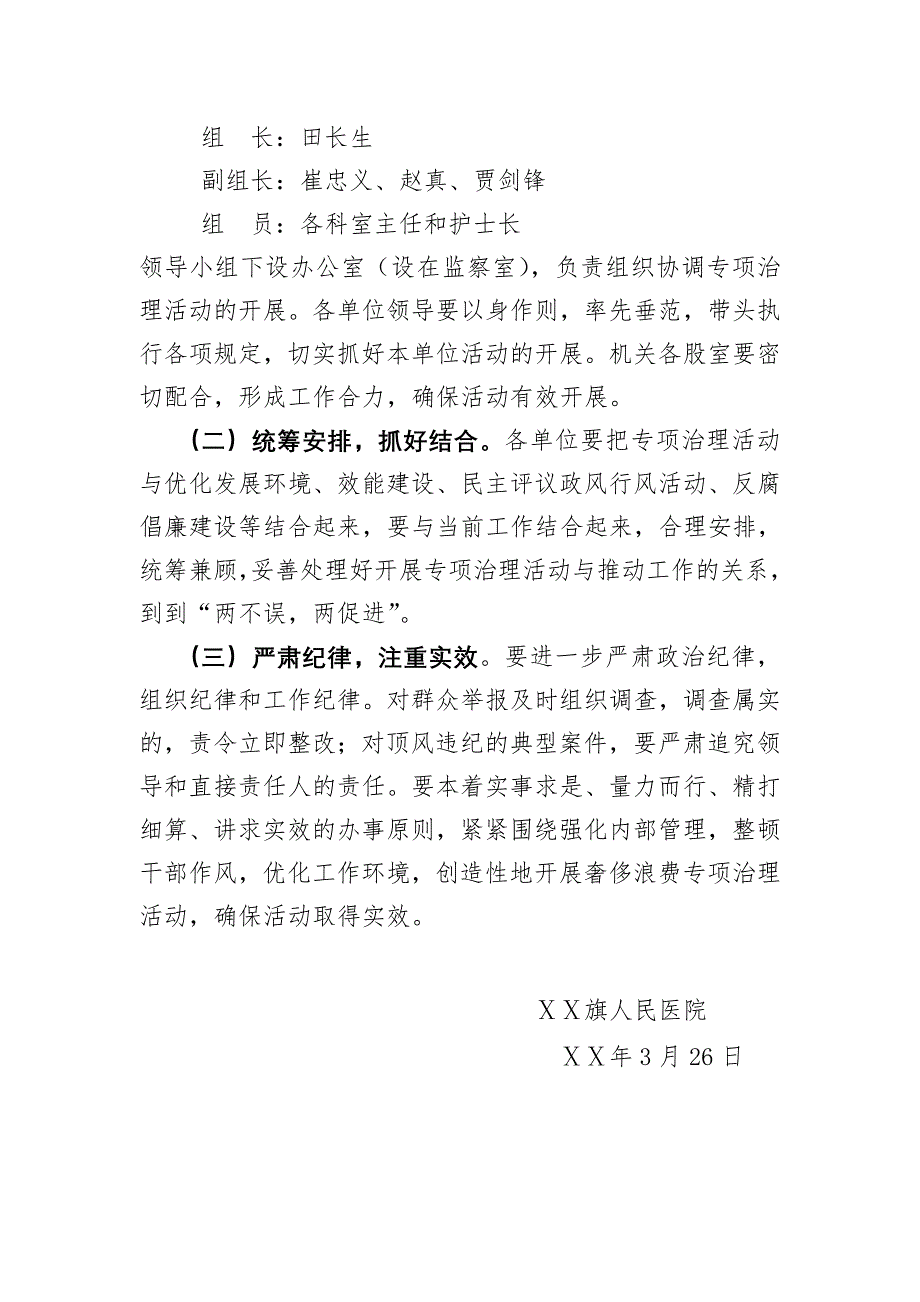 组　长：田长生
副组长：崔忠义、赵真、贾剑锋
组　员：各科室主任和护士长
领导小组下设办公室（设在监察室），负责组织协调专项治
理活动的开展。各单位领导要以身作则，率先垂范，带头执
行各项规定，切实抓好本单位活动的开展。机关各股室要密
切配合，形成工作合力，确保活动有效开展。
（二）统筹安排，抓好结合。各单位要把专项治理活动
与优化发展环境、效能建设、民主评议政风行风活动、反腐
倡廉建设等结合起来，要与当前工作结合起来，合理安排，
统筹兼顾，妥善处理好开展专项治理活动与推动工作的关系，
到到“两不误，两促进”。
（三）严肃纪律，注重实效。要进一步严肃政治纪律，
组织纪律和工作纪律。对群众举报及时组织调查，调查属实
的，责令立即整改；对顶风违纪的典型案件，要严肃追究领
导和直接责任人的责任。要本着实事求是、量力而行、精打
细算、讲求实效的办事原则，紧紧围绕强化内部管理，整顿
干部作风，优化工作环境，创造性地开展奢侈浪费专项治理
活动，确保活动取得实效。
ＸＸ旗人民医院
ＸＸ年 3 月 26 日